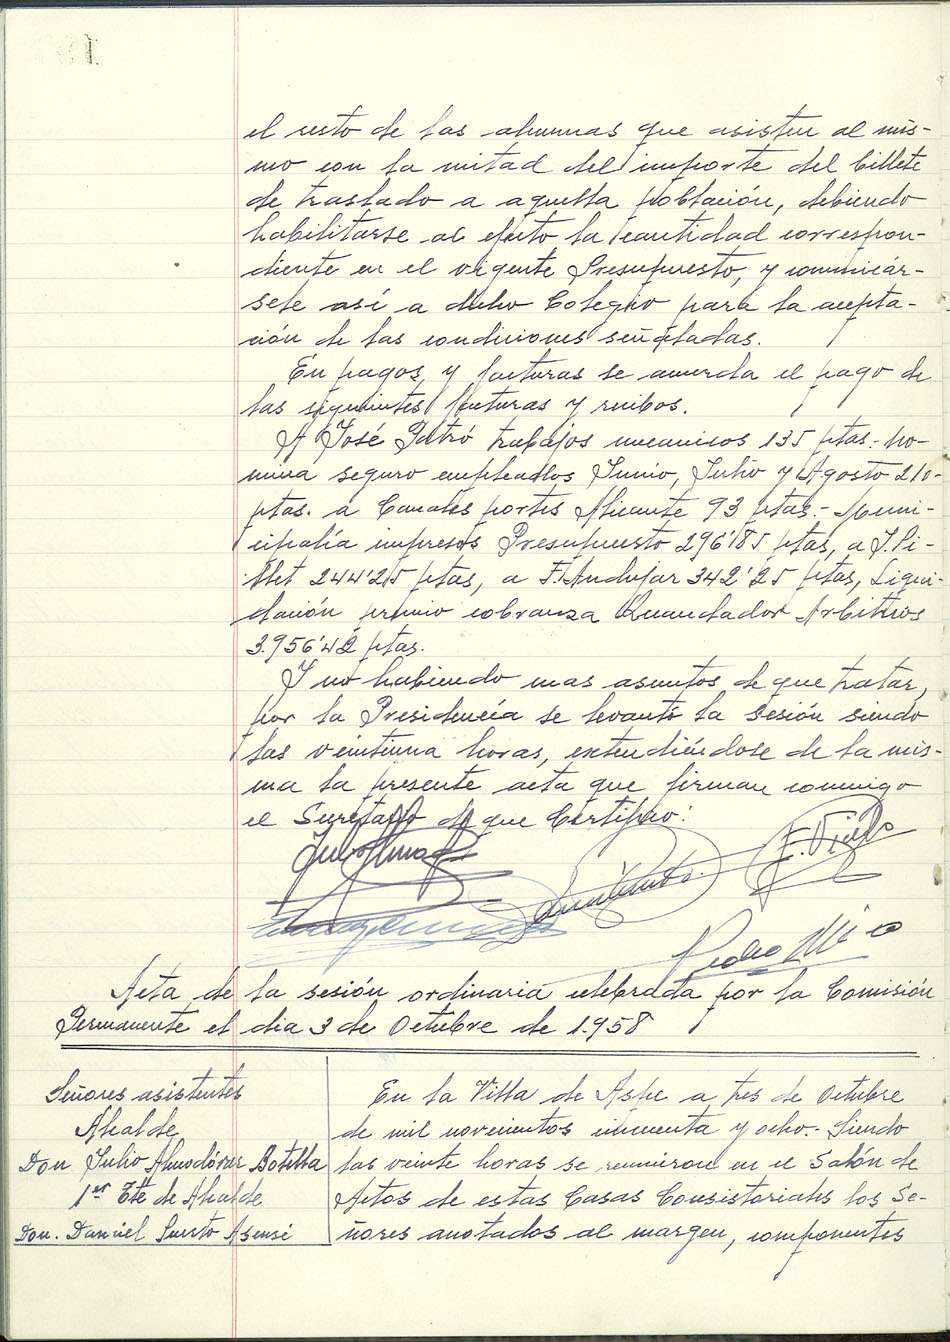 el resto de las alumnas que asisten al mis-
mo con la mitad del importe del billete
de traslado a aquella población, debiendo
habilitarse al efecto la cantidad correspon-
diente en el vigente Presupuesto, y comunicár-
sele así a dicho Colegio para la acepta-
ción de las condiciones señaladas.
En pagos y facturas se acuerda el pago de
las siguientes facturas y recibos.
A José Putró trabajos mecanicos 135 ptas.- no-
mina seguro empleados Junio, Julio y Agosto 210-
ptas. a Canales portes Alicante 93 ptas.- Muni-
cipalia impresos Presupuesto 296'85 ptas, a J. Pi-
llet 244'25 ptas, a F. Andujar 342'25 ptas, Liqui-
dación premio cobranza Recaudador Arbitrios
3.956'42 ptas.
Y no habiendo mas asuntos de que tratar,
por la Presidencia se levantó la sesión siendo
las veintiuna horas, extendiéndose de la mis-
ma la presente acta que firman conmigo
el Secretario de que Certifico:
Pedro Mico
Acta de la sesión ordinaria celebrada por la Comisión
Permanente el dia 3 de Octubre de 1.958
Señores asistentes
Alcalde
Don Julio Almodóvar Botella
1er Tte de Alcalde
Don. Daniel Puerto Asensi
En la Villa de Aspe a tres de Octubre
de mil novecientos cincuenta y ocho.- Siendo
las veinte horas se reunieron en el Salón de
Actos de estas Casas Consistoriales los Se-
ñores anotados al margen, componentes